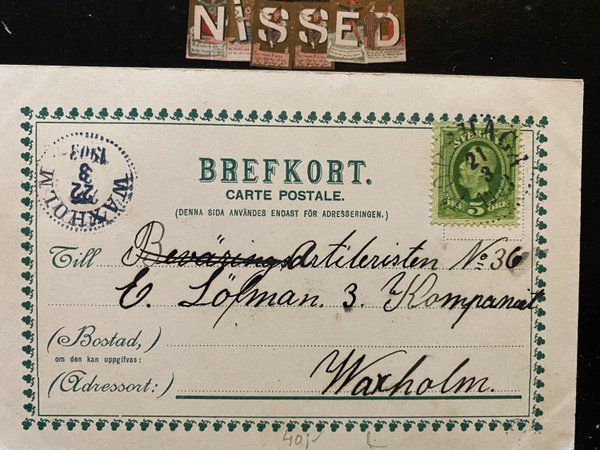 NISSED
BREFKORT.
CARTE POSTALE.
(DENNA SIDA ANVÄNDES ENDAST FÖR ADRESSERINGEN.)
WAXHOLM
22
3
21
3
5
Till Beväring Artilleristen No 36
E. Löfman. 3. Kompaniet
(Bostad,)
om den kan uppgifvas:
(Adressort:)
Waxholm.
40,-